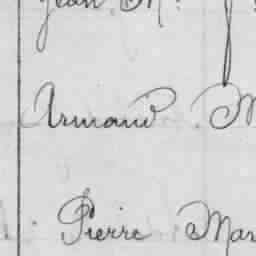 Jean M.
Armand M
Pierre Mar